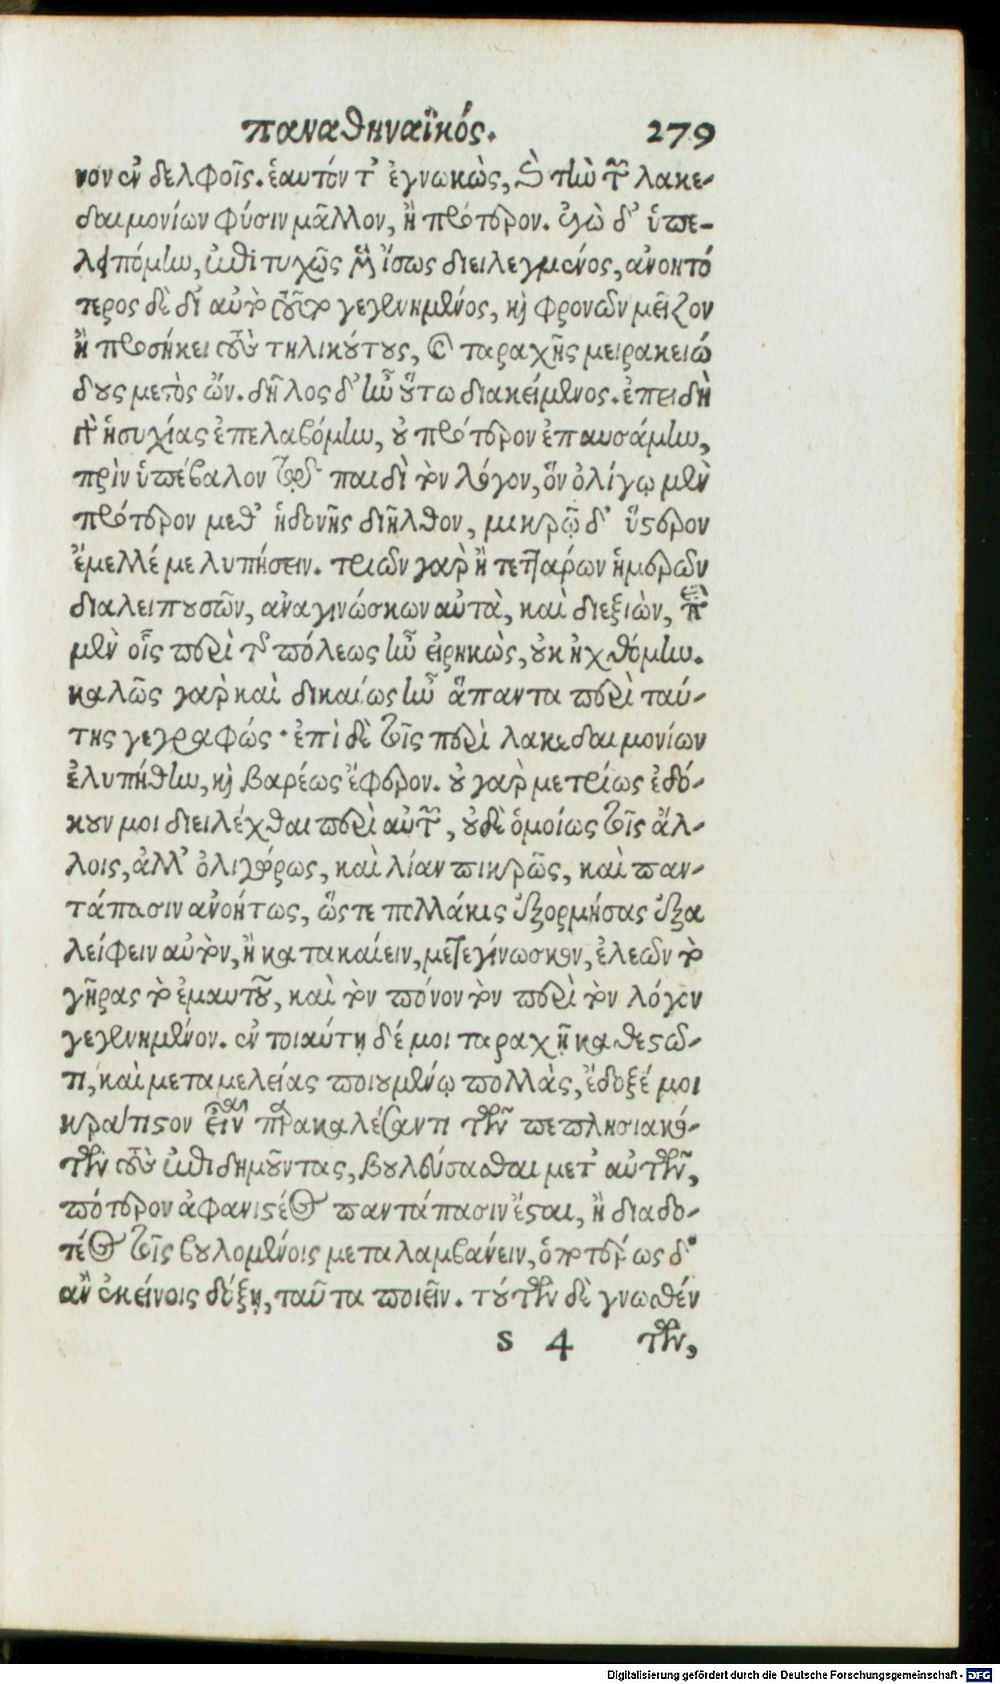 παναθηναϊκός. 279
νον ἐν δελφοῖς. ἑαυτόν τ' ἐγνωκὼς, καὶ τὴν τῶν λακε-
δαιμονίων φύσιν μᾶλλον, ἢ πρότερον. ἐγὼ δ' ὑπε-
λειπόμην, ἐπιτυχῶς μὲν ἴσως διειλεγμένος, ἀνοητό
τερος δὲ δι' αὐτὸ τοῦτο γεγενημένος, καὶ φρονῶν μεῖζον
ἢ προσήκει τοὺς τηλικούτους, καὶ ταραχῆς μειρακιώ
δους μεστὸς ὤν. δῆλος δ' ἦν οὕτω διακείμενος. ἐπειδὴ
τῆς ἡσυχίας ἐπελαβόμην, οὐ πρότερον ἐπαυσάμην,
πρὶν ὑπέβαλον τῷ παιδὶ τὸν λόγον, ὃν ὀλίγῳ μὲν
πρότερον μεθ' ἡδονῆς διῆλθον, μικρῷ δ' ὕστερον
ἔμελλέ με λυπήσειν. τριῶν γὰρ ἢ τεττάρων ἡμερῶν
διαλειπουσῶν, ἀναγινώσκων αὐτὰ, καὶ διεξιὼν, ἐπὶ
μὲν οἷς περὶ τῆς πόλεως ἦν εἰρηκὼς, οὐκ ἠχθόμην.
καλῶς γὰρ καὶ δικαίως ἦν ἅπαντα περὶ ταύ-
της γεγραφώς· ἐπὶ δὲ τοῖς περὶ λακεδαιμονίων
ἐλυπήθην, καὶ βαρέως ἔφερον. οὐ γὰρ μετρίως ἐδό-
κουν μοι διειλέχθαι περὶ αὐτῶν, οὐδὲ ὁμοίως τοῖς ἄλ-
λοις, ἀλλ' ὀλιγώρως, καὶ λίαν πικρῶς, καὶ παν-
τάπασιν ἀνοήτως, ὥστε πολλάκις ἐξορμήσας ἐξα
λείφειν αὐτὸν, ἢ κατακαίειν, μετεγίνωσκον, ἐλεῶν τὸ
γῆρας τὸ ἐμαυτοῦ, καὶ τὸν πόνον τὸν περὶ τὸν λόγον
γεγενημένον. ἐν τοιαύτῃ δέ μοι ταραχῇ καθεστῶ-
τι, καὶ μεταμελείας ποιουμένῳ πολλὰς, ἔδοξέ μοι
κράτιστον εἶναι παρακαλέσαντι τῶν πεπλησιακό-
των τοὺς ἐπιδημοῦντας, βουλεύσασθαι μετ' αὐτῶν,
πότερον ἀφανιστέος παντάπασιν ἔσται, ἢ διαδο-
τέος τοῖς βουλομένοις μεταλαμβάνειν, ὁποτέρως δ'
ἂν ἐκείνοις δόξῃ, ταῦτα ποιεῖν. τούτων δὲ γνωσθέν
s 4 των,
Digitalisierung gefördert durch die Deutsche Forschungsgemeinschaft - DFG